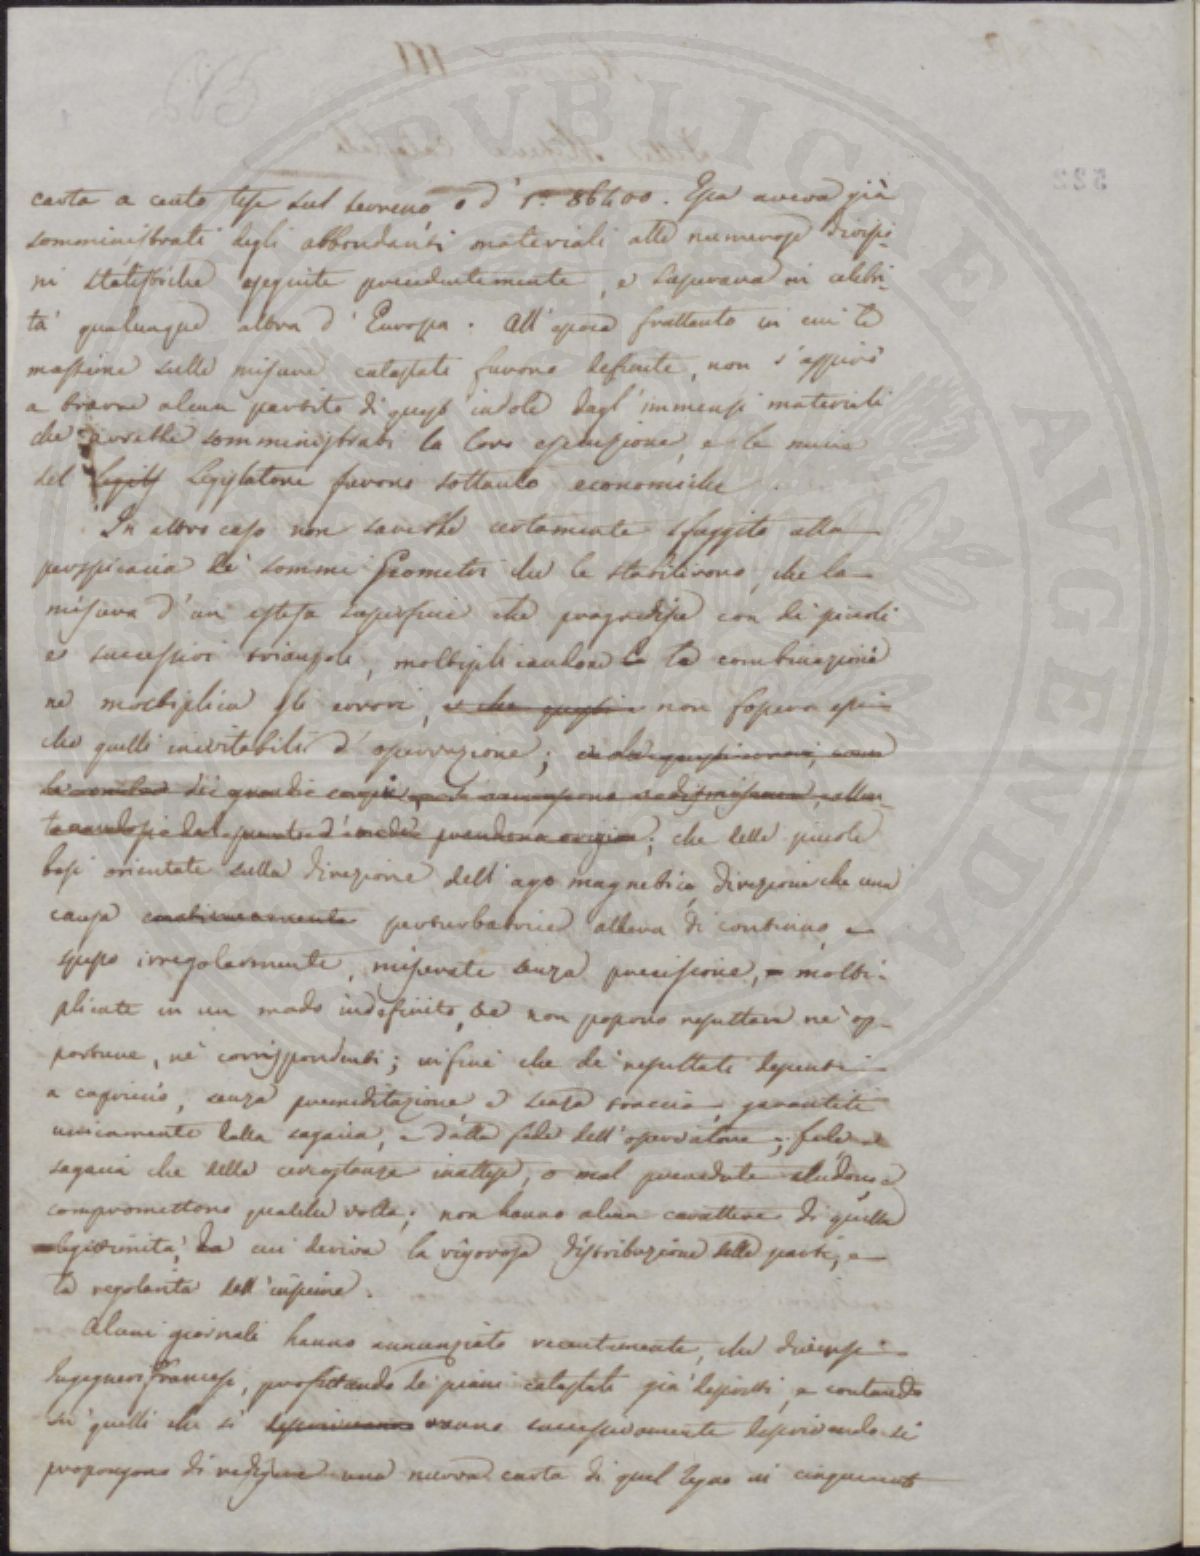 carta a cento tese sul terreno, o d' 1.ª 86400. Essa aveva già
somministrati degli abbondanti materiali alle numerose divisio-
ni statistiche eseguite precedentemente, e superava in celebri-
tà qualunque altra d'Europa. All'epoca frattanto in cui le
massime sulle misure catastali furono definite, non s'aspirò
a trarre alcun partito di quest'indole dagl'immensi materiali
che avrebbe somministrati la loro esecuzione, e le mire
del Legislatore furono soltanto economiche.
In altro caso non sarebbe certamente sfuggito alla
perspicacia de' sommi Geometri che le stabilirono, che la
misura d'un estesa superficie che progredisce con de' piccoli
e successivi triangoli, moltiplicandone la combinazione
ne moltiplica gli errori, e che questi non fossero essi
che quelli inevitabili d'osservazione;
che delle piccole
basi orientate sulla direzione dell'ago magnetico, direzione che una
causa continuamente perturbatrice altera di continuo, e
spesso irregolarmente, misurate senza precisione, e molti-
plicate in un modo indefinito, non possono resultare nè op-
portune, nè corrispondenti; infine che de' resultati
a capriccio, senza premeditazione, e senza traccia, garantiti
unicamente dalla sagacia, e dalla fede dell'operatore; fede e
sagacia che delle circostanze inattese, o mal prevedute eludono, e
compromettono qualche volta; non hanno alcun carattere di quella
legittimità, da cui deriva la rigorosa distribuzione delle parti, e
la regolarità dell'insieme.
Alcuni giornali hanno annunziato recentemente, che diversi
Ingegneri francesi, profittando de' piani catastali già descritti, e contando
su quelli che si vanno successivamente descrivendo si
propongono di redigere una nuova carta di quel Regno in cinquecento